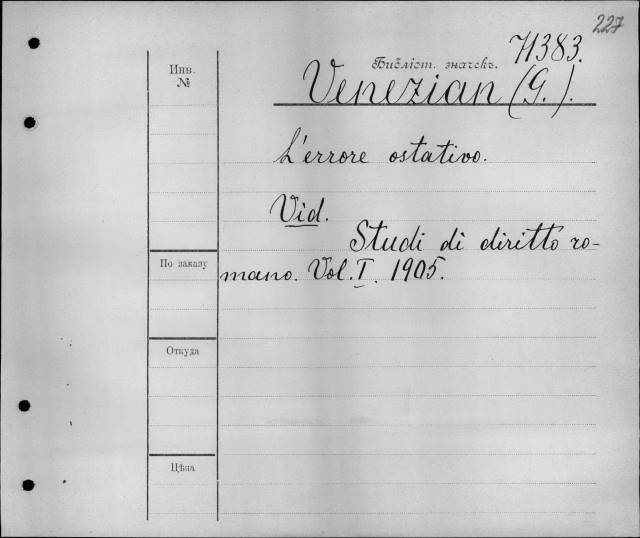 227
Библіот. значекъ. 71383.
Инв.
№
Venezian (G.).
L'errore ostativo.
Vid.
Studi di diritto ro-
mano. Vol. I. 1905.
По заказу
Откуда
Цѣна